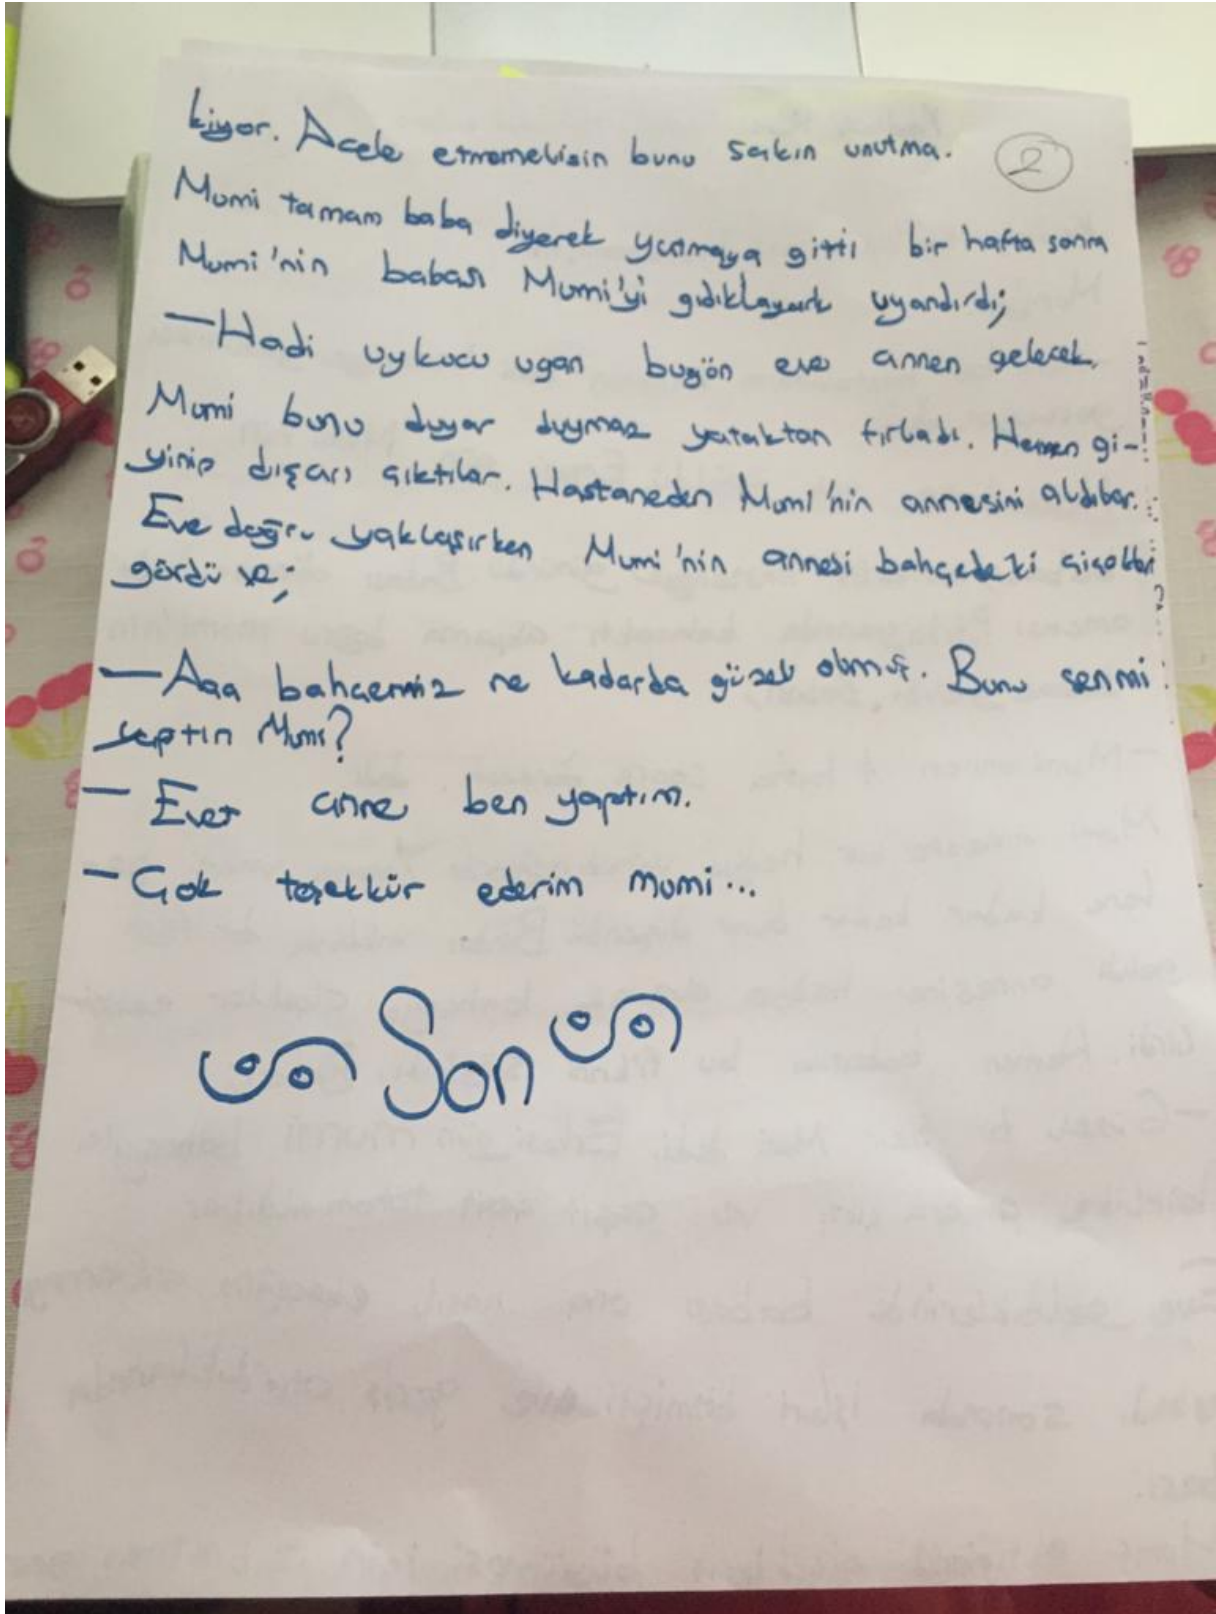 kiyor. Acele etmemelisin bunu sakın unutma. 2
Mumi tamam baba diyerek yatmaya gitti bir hafta sonra
Mumi'nin babası Mumi'yi gıdıklayark uyandırdı;
—Hadi uykucu uyan bugün eve annen gelecek.
Mumi bunu duyar duymaz yataktan fırladı. Hemen gi-
yinip dışarı çıktılar. Hastaneden Mumi'nin annesini aldılar.
Eve doğru yaklaşırken Mumi'nin annesi bahçedeki çiçekleri
gördü ve;
—Aaa bahcemiz ne kadarda güzel olmuş. Bunu senmi
yaptın Mumi?
— Evet anne ben yaptım.
— Çok teşekkür ederim mumi...
Son